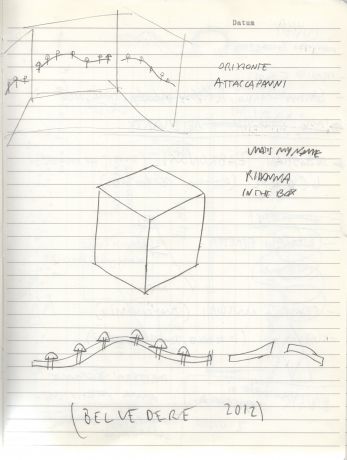 Datum
ORIZZONTE
ATTACCAPANNI
WHATS MY NAME
RIHANNA
IN THE
(BELVEDERE 2012)